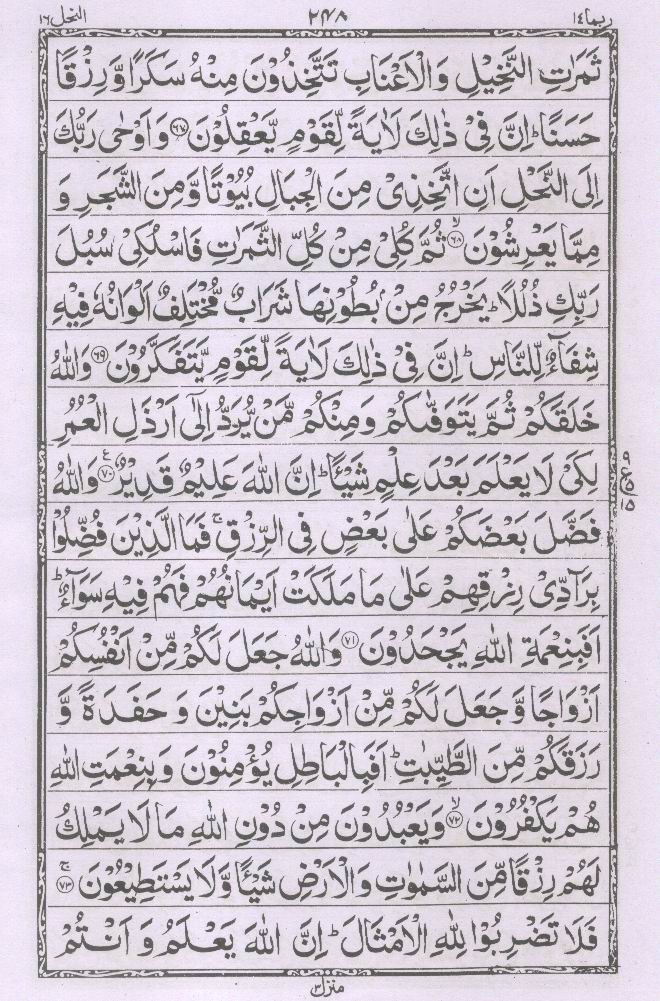 ربما ١٤
٢٤٨
النحل ١٦
ثَمَرٰتِ النَّخِيْلِ وَالْاَعْنَابِ تَتَّخِذُوْنَ مِنْهُ سَكَرًا وَّرِزْقًا
حَسَنًا ؕ اِنَّ فِىْ ذٰلِكَ لَاٰيَةً لِّقَوْمٍ يَّعْقِلُوْنَ ﴿۶۷﴾ وَاَوْحٰى رَبُّكَ
اِلَى النَّحْلِ اَنِ اتَّخِذِىْ مِنَ الْجِبَالِ بُيُوْتًا وَّمِنَ الشَّجَرِ وَ
مِمَّا يَعْرِشُوْنَ ۙ﴿۶۸﴾ ثُمَّ كُلِىْ مِنْ كُلِّ الثَّمَرٰتِ فَاسْلُكِىْ سُبُلَ
رَبِّكِ ذُلُلًا ؕ يَخْرُجُ مِنْۢ بُطُوْنِهَا شَرَابٌ مُّخْتَلِفٌ اَلْوَانُهٗ فِيْهِ
شِفَآءٌ لِّلنَّاسِ ؕ اِنَّ فِىْ ذٰلِكَ لَاٰيَةً لِّقَوْمٍ يَّتَفَكَّرُوْنَ ﴿۶۹﴾ وَاللّٰهُ
خَلَقَكُمْ ثُمَّ يَتَوَفّٰٮكُمْ وَمِنْكُمْ مَّنْ يُّرَدُّ اِلٰٓى اَرْذَلِ الْعُمُرِ
لِكَىْ لَا يَعْلَمَ بَعْدَ عِلْمٍ شَيْـًٔا ؕ اِنَّ اللّٰهَ عَلِيْمٌ قَدِيْرٌ ﴿۷۰﴾ع وَاللّٰهُ
فَضَّلَ بَعْضَكُمْ عَلٰى بَعْضٍ فِى الرِّزْقِ ۚ فَمَا الَّذِيْنَ فُضِّلُوْا
بِرَآدِّىْ رِزْقِهِمْ عَلٰى مَا مَلَكَتْ اَيْمَانُهُمْ فَهُمْ فِيْهِ سَوَآءٌ ؕ
اَفَبِنِعْمَةِ اللّٰهِ يَجْحَدُوْنَ ﴿۷۱﴾ وَاللّٰهُ جَعَلَ لَكُمْ مِّنْ اَنْفُسِكُمْ
اَزْوَاجًا وَّجَعَلَ لَكُمْ مِّنْ اَزْوَاجِكُمْ بَنِيْنَ وَ حَفَدَةً وَّ
رَزَقَكُمْ مِّنَ الطَّيِّبٰتِ ؕ اَفَبِالْبَاطِلِ يُؤْمِنُوْنَ وَبِنِعْمَتِ اللّٰهِ
هُمْ يَكْفُرُوْنَ ۙ﴿۷۲﴾ وَيَعْبُدُوْنَ مِنْ دُوْنِ اللّٰهِ مَا لَا يَمْلِكُ
لَهُمْ رِزْقًا مِّنَ السَّمٰوٰتِ وَالْاَرْضِ شَيْـًٔا وَّلَا يَسْتَطِيْعُوْنَ ۚ﴿۷۳﴾
فَلَا تَضْرِبُوْا لِلّٰهِ الْاَمْثَالَ ؕ اِنَّ اللّٰهَ يَعْلَمُ وَ اَنْتُمْ
منزل ۳